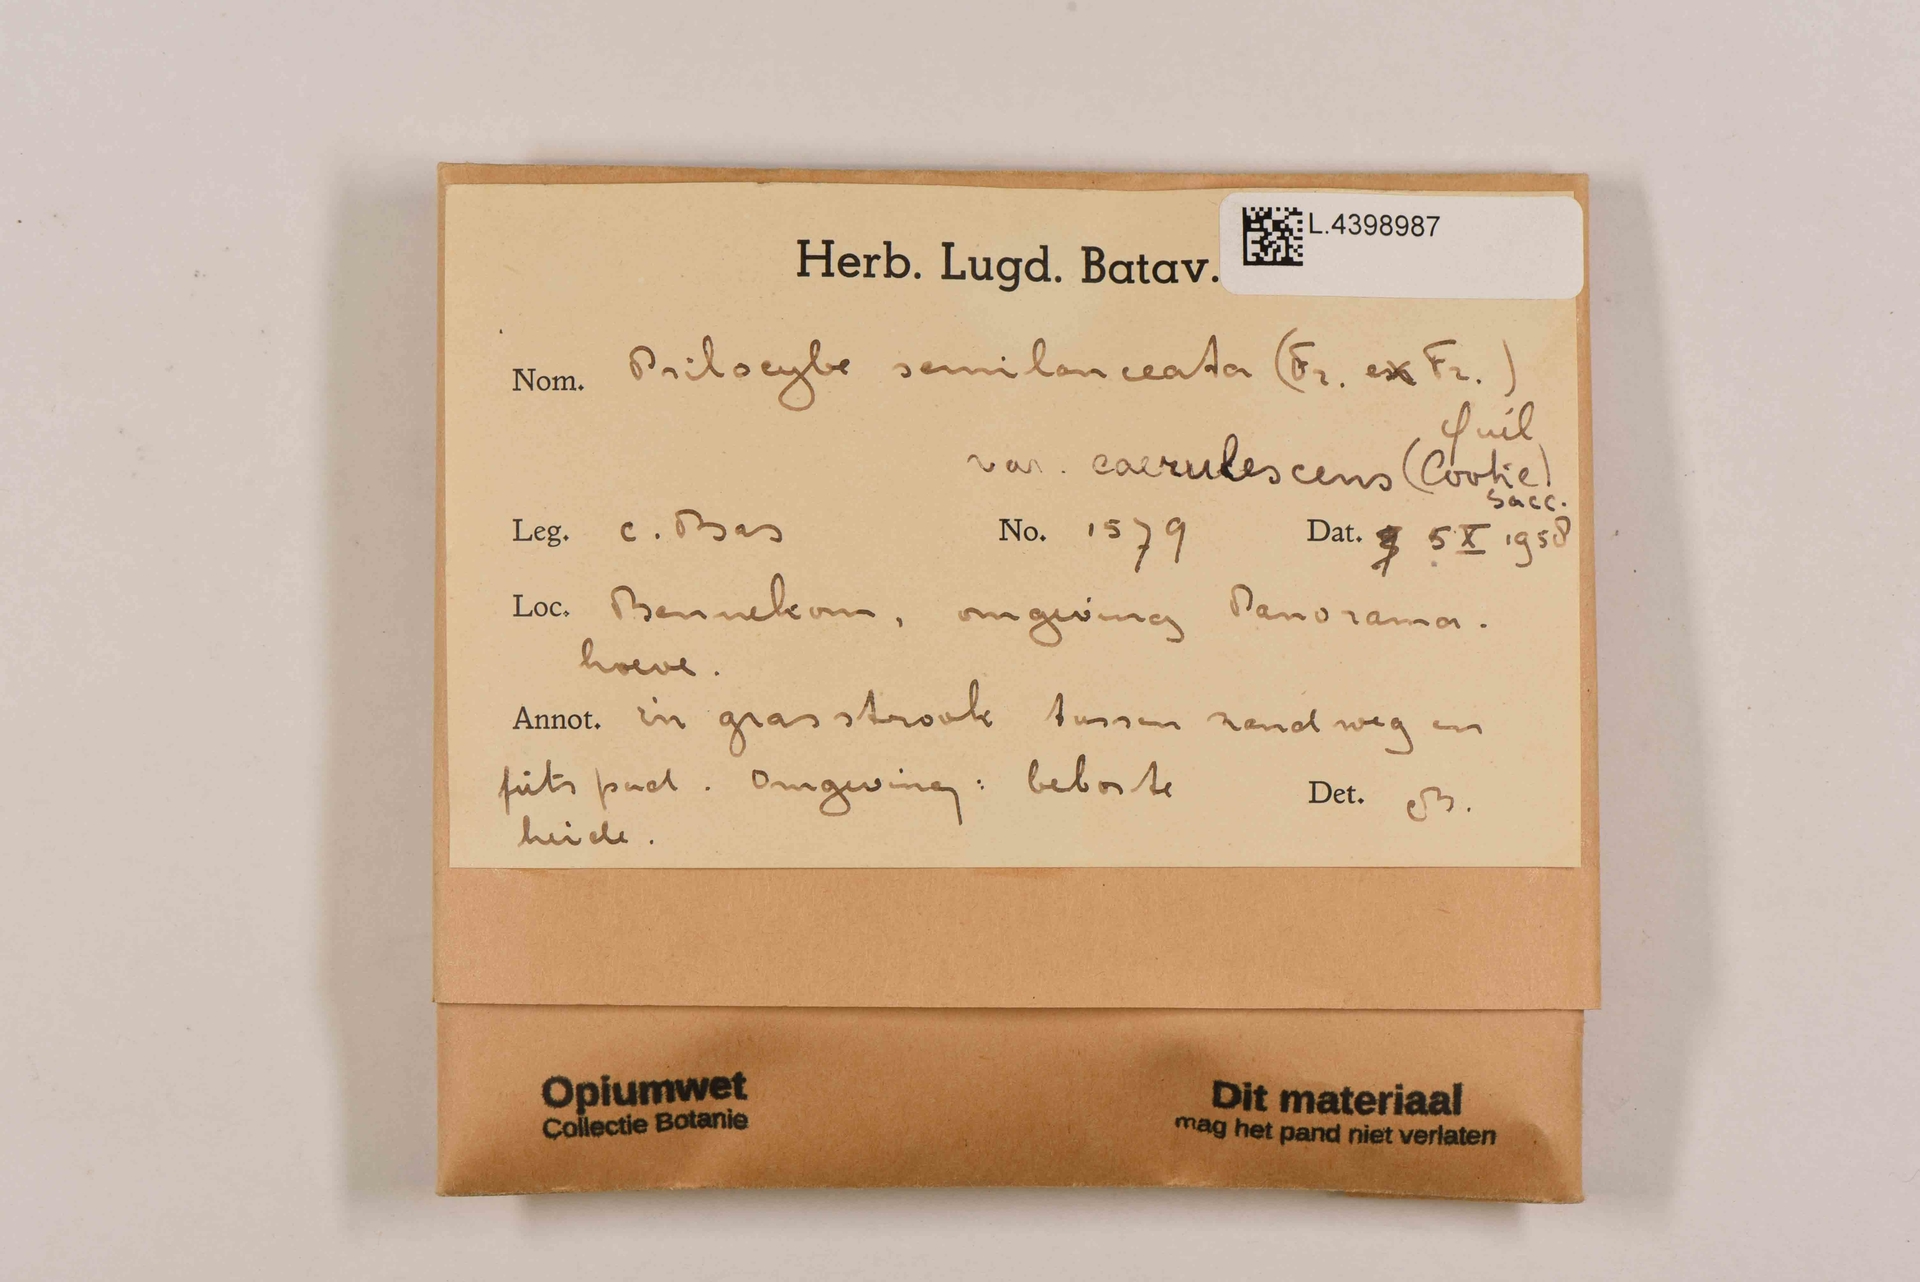 Herb. Lugd. Batav.
L.4398987
Nom. Psilocybe semilanceata (Fr. ex Fr.)
Quél
var. caerulescens (Cooke)
Sacc.
Leg. C. Bas No. 1579 Dat. 5 X 1958
Loc. Bennekom, omgeving Panorama.
hoeve.
Annot. in grasstrook tussen zandweg en
fiets pad. Omgeving: beboste
Det. B.
heide.
Opiumwet
Collectie Botanie
Dit materiaal
mag het pand niet verlaten